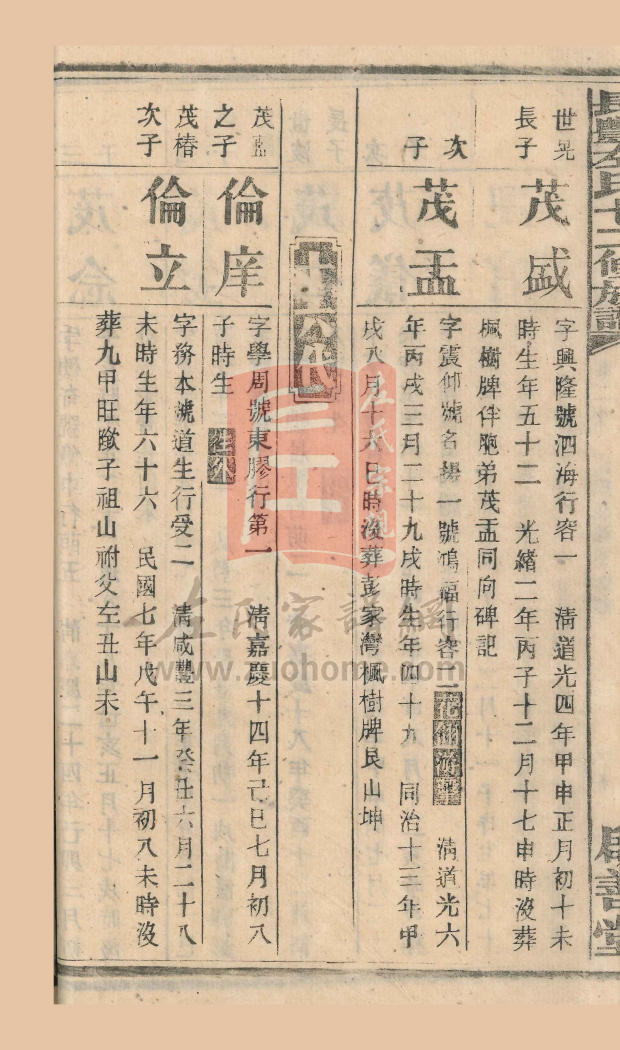 世晃
長子
茂盛
字興隆號泗海行容一 清道光四年甲申正月初十未
時生年五十二 光緒二年丙子十二月十七申時沒葬
楓樹牌伴胞弟茂盂同向碑記
次
子
茂盂
字震仰號名揚一號鴻福行容二 清道光六
年丙戌三月二十九戌時生年四十九 同治十三年甲
戌八月十六日時沒葬彭家灣楓樹牌艮山坤
茂
之子
倫庠
字學周號東膠行第一 清嘉慶十四年己巳七月初八
子時生
茂椿
次子
倫立
字務本號道生行受二 清咸豐三年癸丑六月二十八
未時生年六十六 民國七年戊午十一月初八未時沒
葬九甲旺 子祖山祔父左丑山未
左氏家譜網
www.zuohome.com